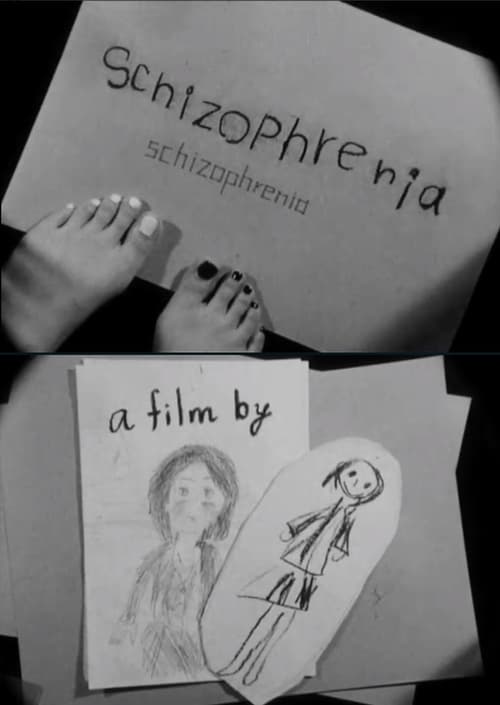 Schizophrenia
schizophrenia
a film by